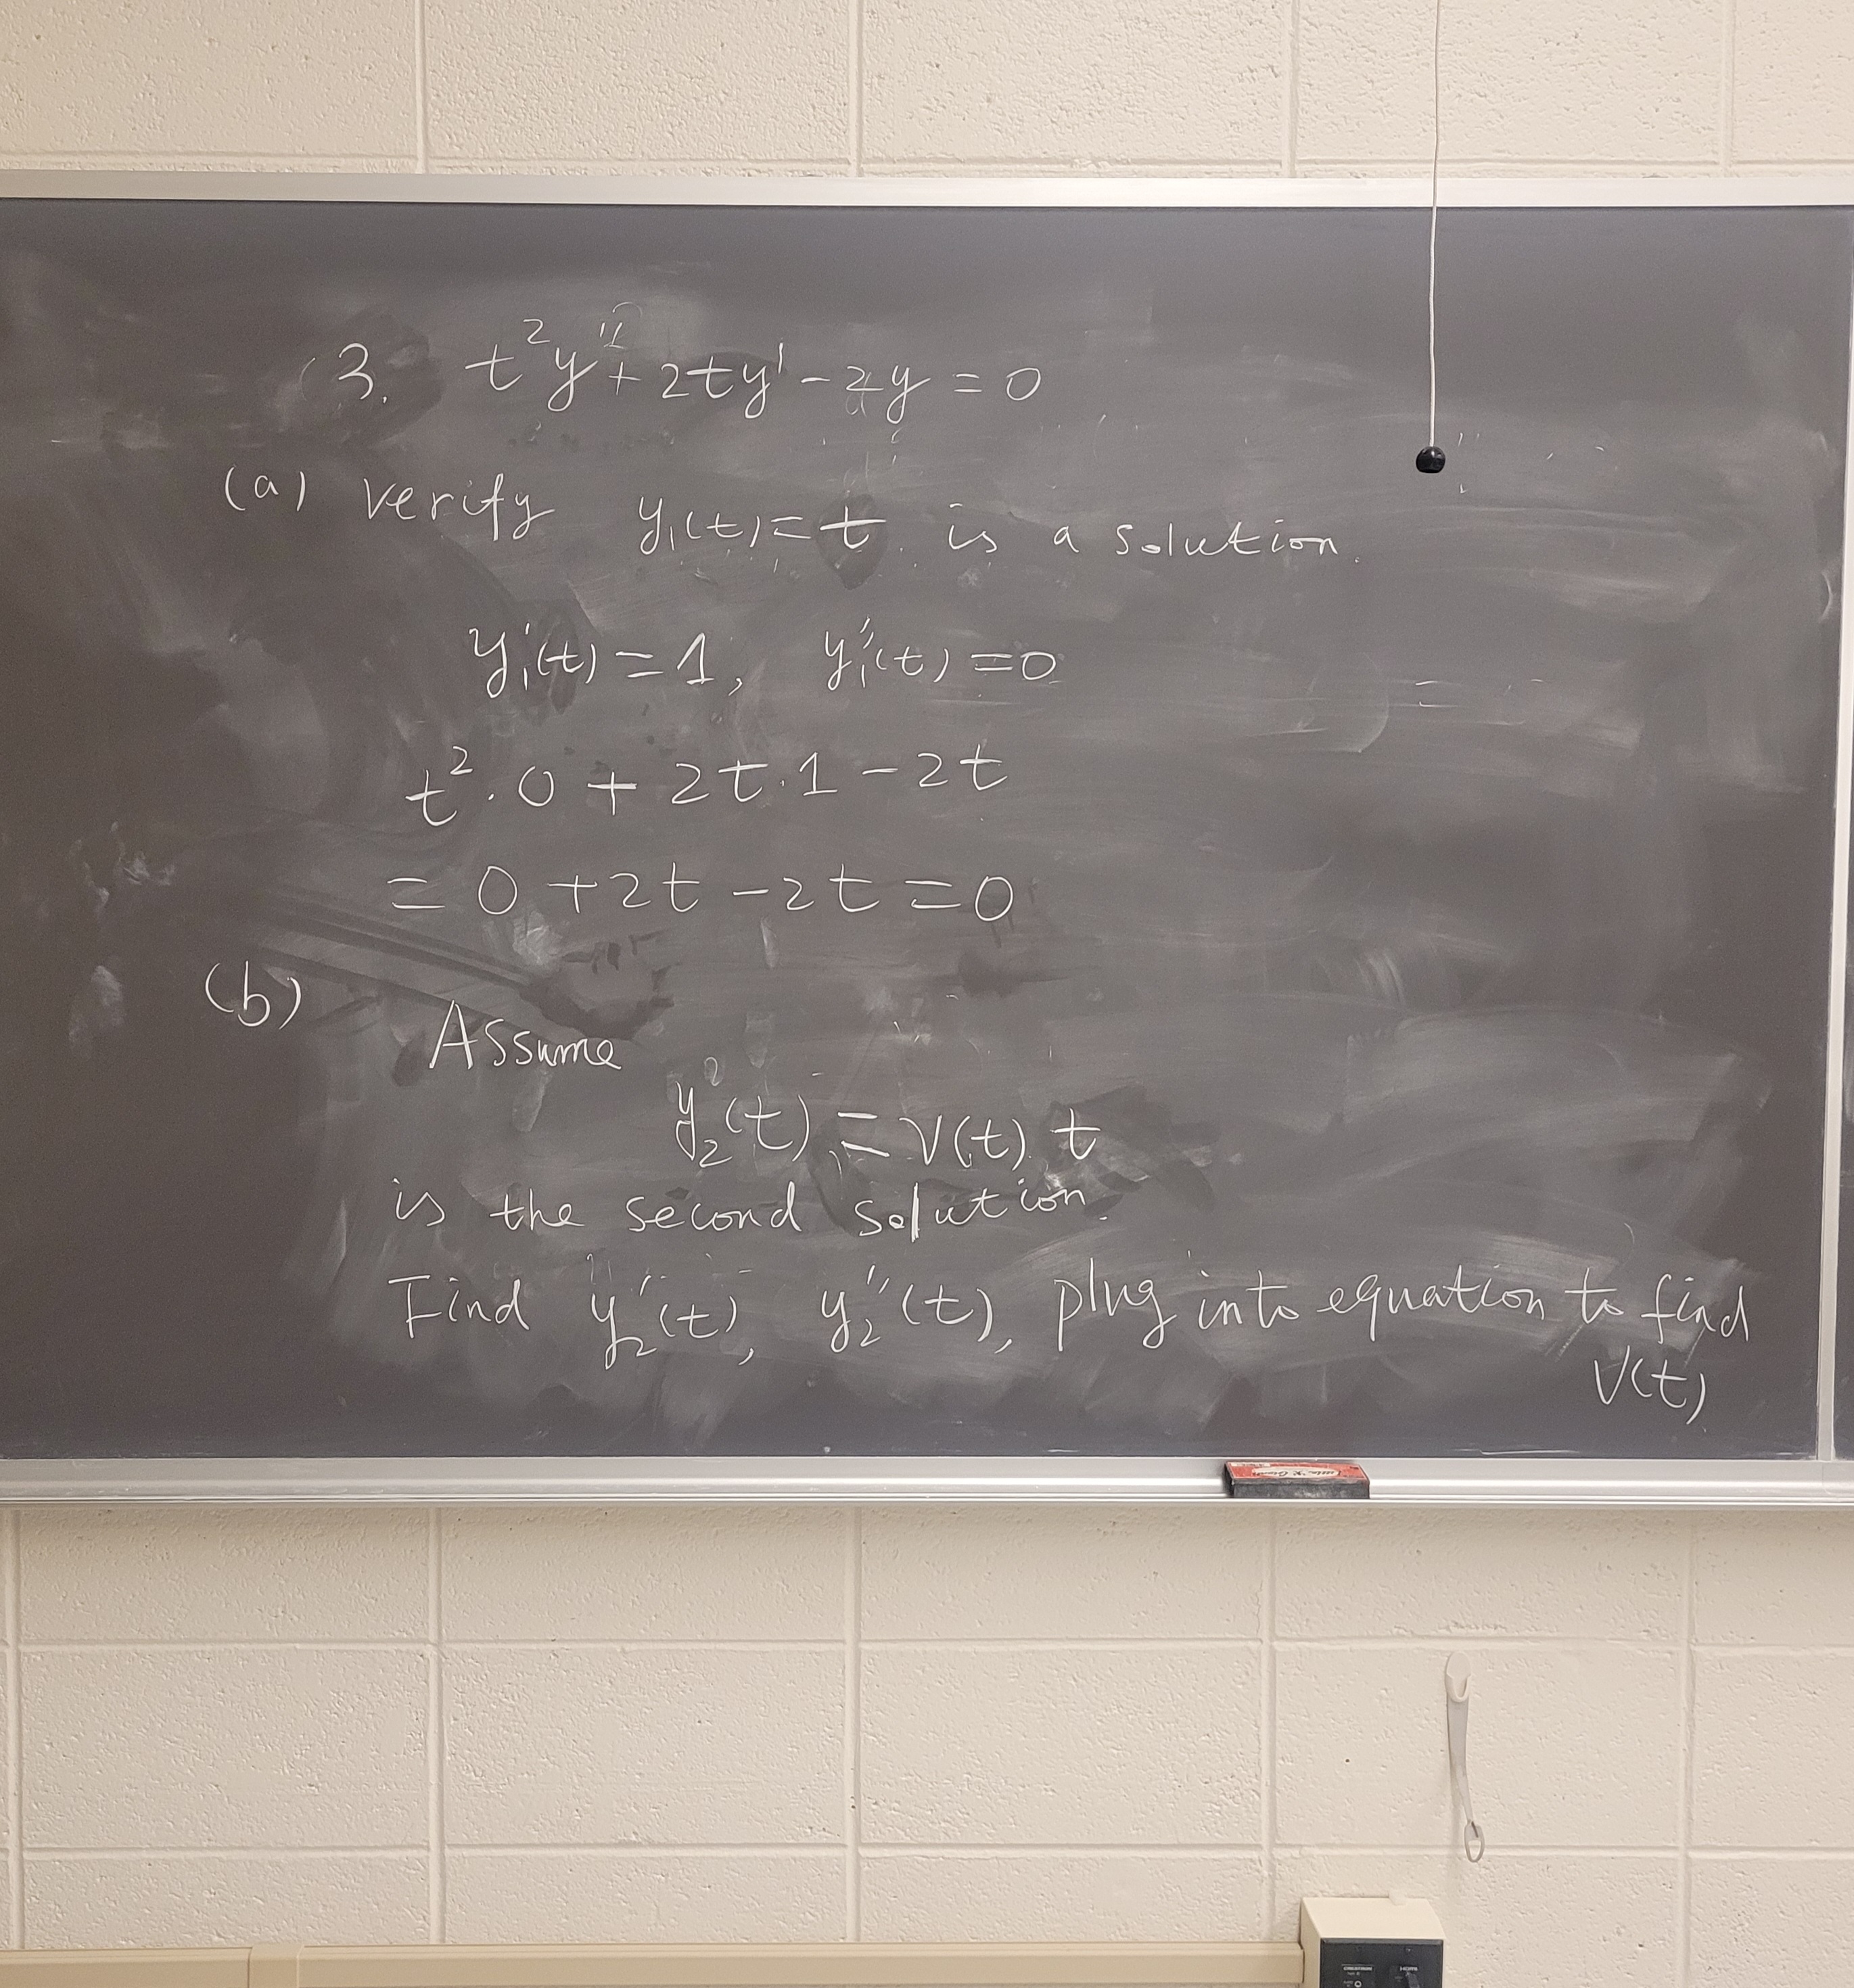 3. t²y'' + 2ty' - 2y = 0
(a) verify y₁(t) = t is a solution.
y₁'(t) = 1, y₁''(t) = 0
t² · 0 + 2t · 1 - 2t
= 0 + 2t - 2t = 0
(b)
Assume
y₂(t) = v(t) t
is the second solution.
Find y₂'(t), y₂''(t), plug into equation to find
v(t)